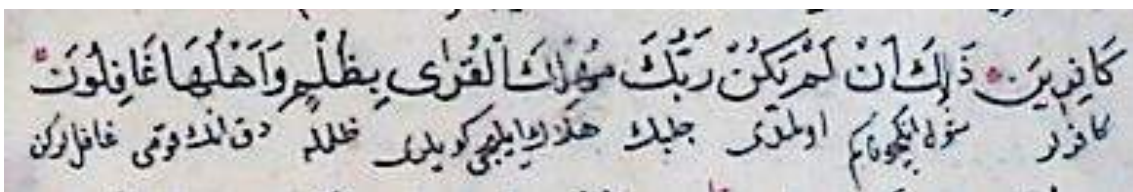 كَافِرِينَ ۞ ذَلِكَ اَنْ لَمْ يَكُنْ رَبُّكَ مُهْلِكَ الْقُرٰى بِظُلْمٍ وَاَهْلُهَا غَافِلُونَ
كافرلر شول انكيچونكم اولمدى چلبك هلاك ايليجى كويلرى ظلمله دق انك قومى غافلركن